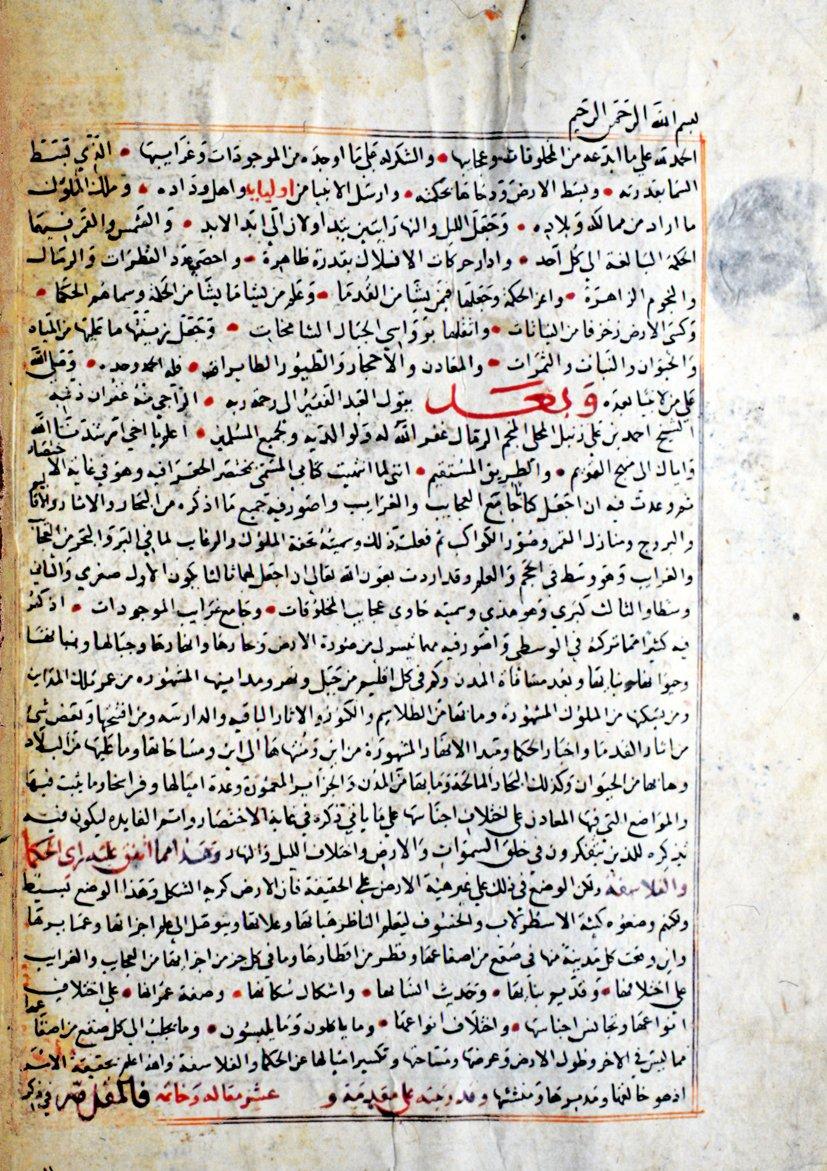 بسم الله الرحمن الرحيم
الحمد لله على ما ابتدعه من المخلوقات وعجايبها • والشكر له على ما اوجده من الموجودات وغرايبها • الذي بسط
السما بقدرته • وبسط الارض ودحاها بحكمته • وارسل الانبيا من اوليايه واهل وداده • وملك الملوك
ما اراد من ممالكه وبلاده • وجعل الليل والنهار ايتين الى ابد الابد • والشمس والقمر فيهما
الحكمة البالغة الى كل احد • وادار حركات الافلاك بقدرة ظاهرة • واحصى عدد القطرات والرمال
والنجوم الزاهرة • من يشا من القدما • وعلم من يشا ما يشا من الحكمة وسماهم الحكما •
وكسى الارض زخرفا من النباتات • واثقلها برواسي الجبال الشامخات • وجعل زينتها ما عليها من المياه
والحيوان والنبات والثمرات • والمعادن والاحجار والطيور الطايرات • فله الحمد وحده • وصلى الله
على من لا نبيا بعده وبعد يقول العبد الفقير الى رحمة ربه • الراجي منه غفران ذنبه
الشيخ احمد بن على زنبل المحلي المنجم الرمال غفر الله له ولوالديه ولجميع المسلمين • اعلم يا اخي ارشدنا الله
واياك الى منهج القويم • والطريق المستقيم • انني لما انتهيت كتابي المسمى بمختصر الجغرافيه وهو في غاية الاختصار
ثم وعدت فيه ان اجعل كتابا جامع العجايب والغرايب واصور فيه جميع ما اذكره من البحار والانهار والاقاليم
والبروج ومنازل القمر وصور الكواكب ثم فعلت ذلك وسميته تحفة الملوك والرغايب لما في البر والبحر من العجايب
والغرايب وهو وسط في الحجم والعلم وقد اردت بعون الله تعالى ان اجعل لهما ثالثا ليكون الاول صغرى والثاني
وسطا والثالث كبرى وهو هذى وسميته حاوى عجايب المخلوقات • وجامع غرايب الموجودات • اذكر
فيه كثيرا مما تركته في الوسطى واصور فيه مهما تيسر لى من صورة الارض وبحارها وانهارها وجبالها
وحيواناتها وبعد مسافات المدن وكم في كل اقليم من جبل ونهر ومدينتها المشهوره من عمر تلك المداين
ومن سكنها من الملوك المشهورة وما بها من الطلاسم والكنوز والاثار الباقيه والدارسه ومن افتتحها وبعض شي
من اثار القدما واخبار الحكما ومبدا الانهار المشهورة من اين ومنتهاها الى اين ومسافاتها وما عليها من البلاد
وما بها من الحيوان وكذلك البحار المالحة وما بها من المدن والجزاير المعمورة وعدة اميالها وفراسخها وما ينبت فيها
والمواضع التي فيها المعادن على اختلاف اجناسها على ما ياتي ذكره في غاية الاختصار واتم الفايده ليكون فيه
تذكره للذين يتفكرون في خلق السموات والارض واختلاف الليل والنهار وهذا مما اتفق عليه راى الحكما
والفلاسفة ولكن الوضع في ذلك على غير هيئة الارض على الحقيقة فان الارض كرية الشكل وهذا الوضع تبسيط
ولكنهم وضعوه كهيئة الاسطرلاب والخسوف ليعلم الناظر ويتوصل الى علم اجزايها
واين وقعت كل مدينة منها في صقع من اصقاعها وقطر من اقطارها وما في كل جزء من اجزايها من العجايب والغرايب
على اختلافها • وقديم بنايها • وحديث انشايها • واشكال سكانها • وصفة عمرانها • على اختلاف
انواعها وتجانس اجناسها • واختلاف انواعها • وما ياكلون وما يلبسون • وما يجلب الى كل صقع من اصقاعها
مما ليس في الاخر وطول الارض وعرضها ومساحتها وتكسير اميالها عن الحكما والفلاسفة والله اعلم بحقيقة الاشيا
اذ هو خالقها ومدبرها ومنشئها وقد رتبته على مقدمة و عشر مقاله وخاتمه فالمقدمة في ذكر